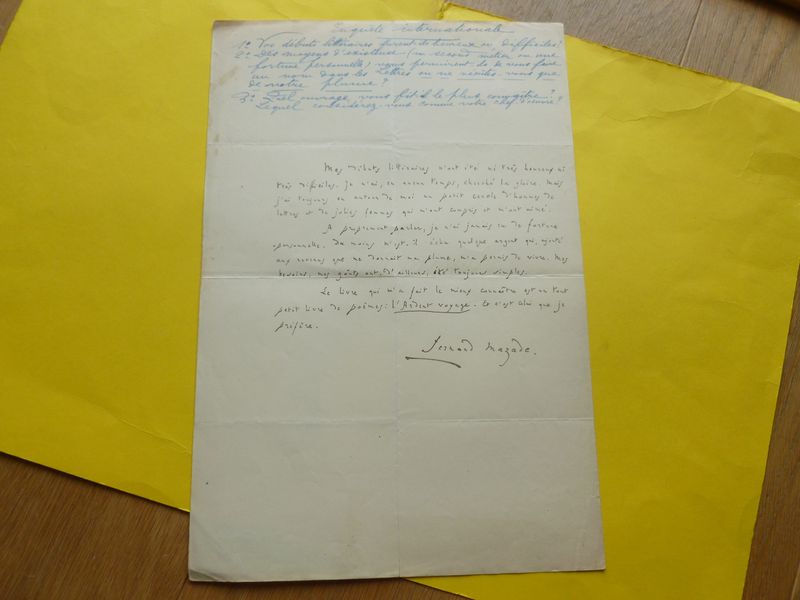 Enquête internationale
1º Vos débuts littéraires furent-ils heureux ou difficiles?
2º Des moyens d'existence (un second métier ou une
fortune personnelle) vous permirent-ils de vous faire
un nom dans les Lettres ou ne vécûtes-vous que
de votre plume?
3º Quel ouvrage vous fit le plus connaître?
Lequel considérez-vous comme votre chef d'œuvre?
Mes débuts littéraires n'ont été ni très heureux ni
très difficiles. Je n'ai, en aucun temps, cherché la gloire. Mais
j'ai toujours eu autour de moi un petit cercle d'hommes de
lettres et de jolies femmes qui m'ont compris et m'ont aimé.
A proprement parler, je n'ai jamais eu de fortune
personnelle. Du moins m'est-il échu quelque argent qui, ajouté
aux revenus que me donnait ma plume, m'a permis de vivre. Mes
besoins, mes goûts ont, d'ailleurs, été toujours simples.
Le livre qui m'a fait le mieux connaître est un tout
petit livre de poèmes: l'Ardent voyage. Et c'est celui que je
préfère.
Fernand Mazade.